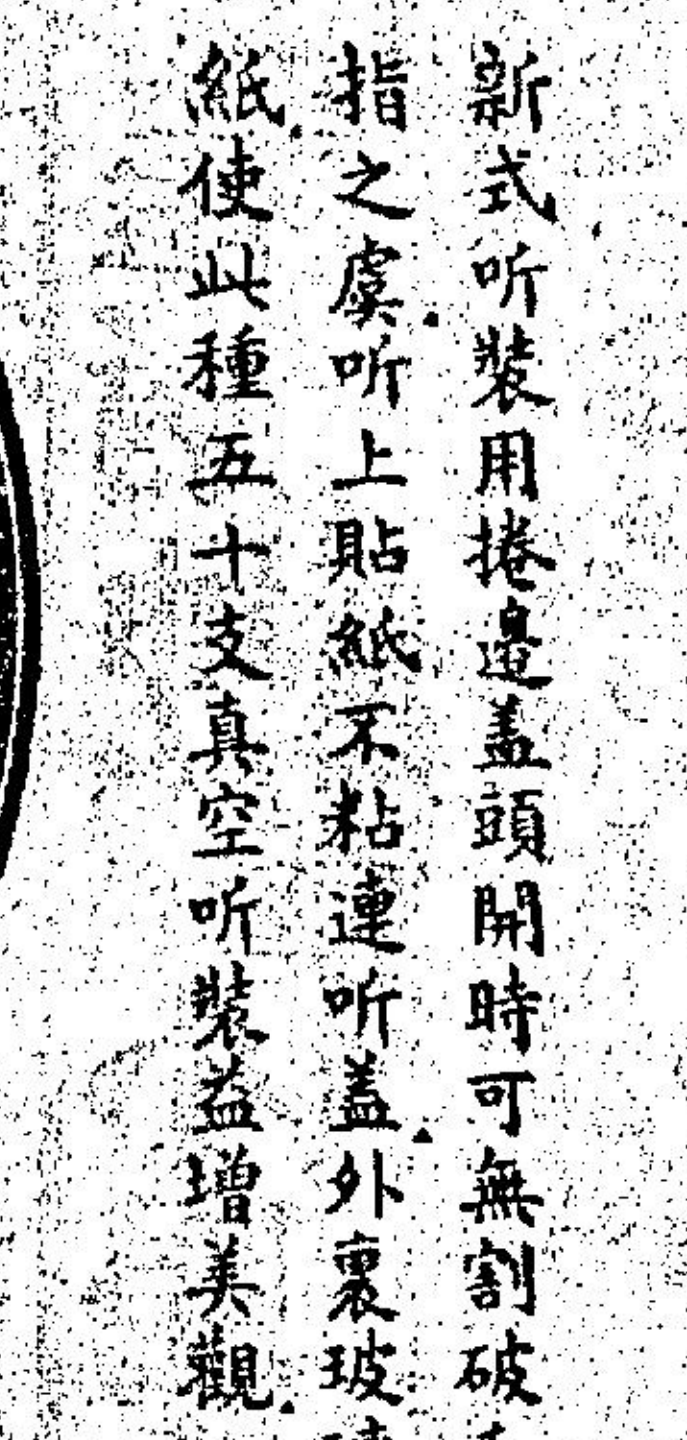 新式听裝用捲邊盖頭開時可無割破
指之虞．听上貼紙不粘連听盖．外裹玻
紙．使此種五十支真空听裝益增美觀．